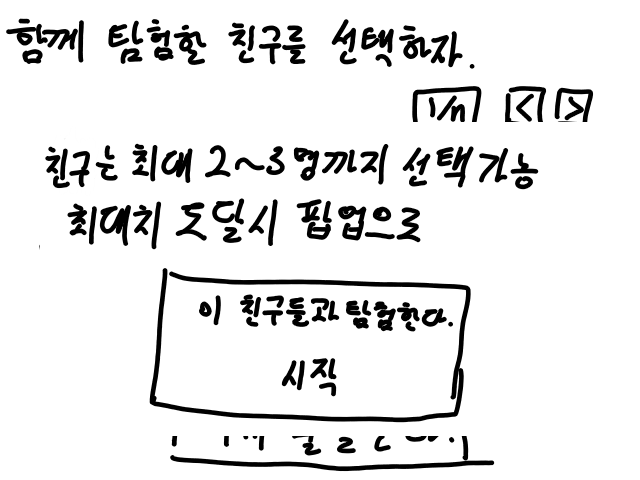 함께 탐험할 친구를 선택하자.
1/n < >
친구는 최대 2~3명까지 선택가능
최대치 도달시 팝업으로
이 친구들과 탐험한다.
시작